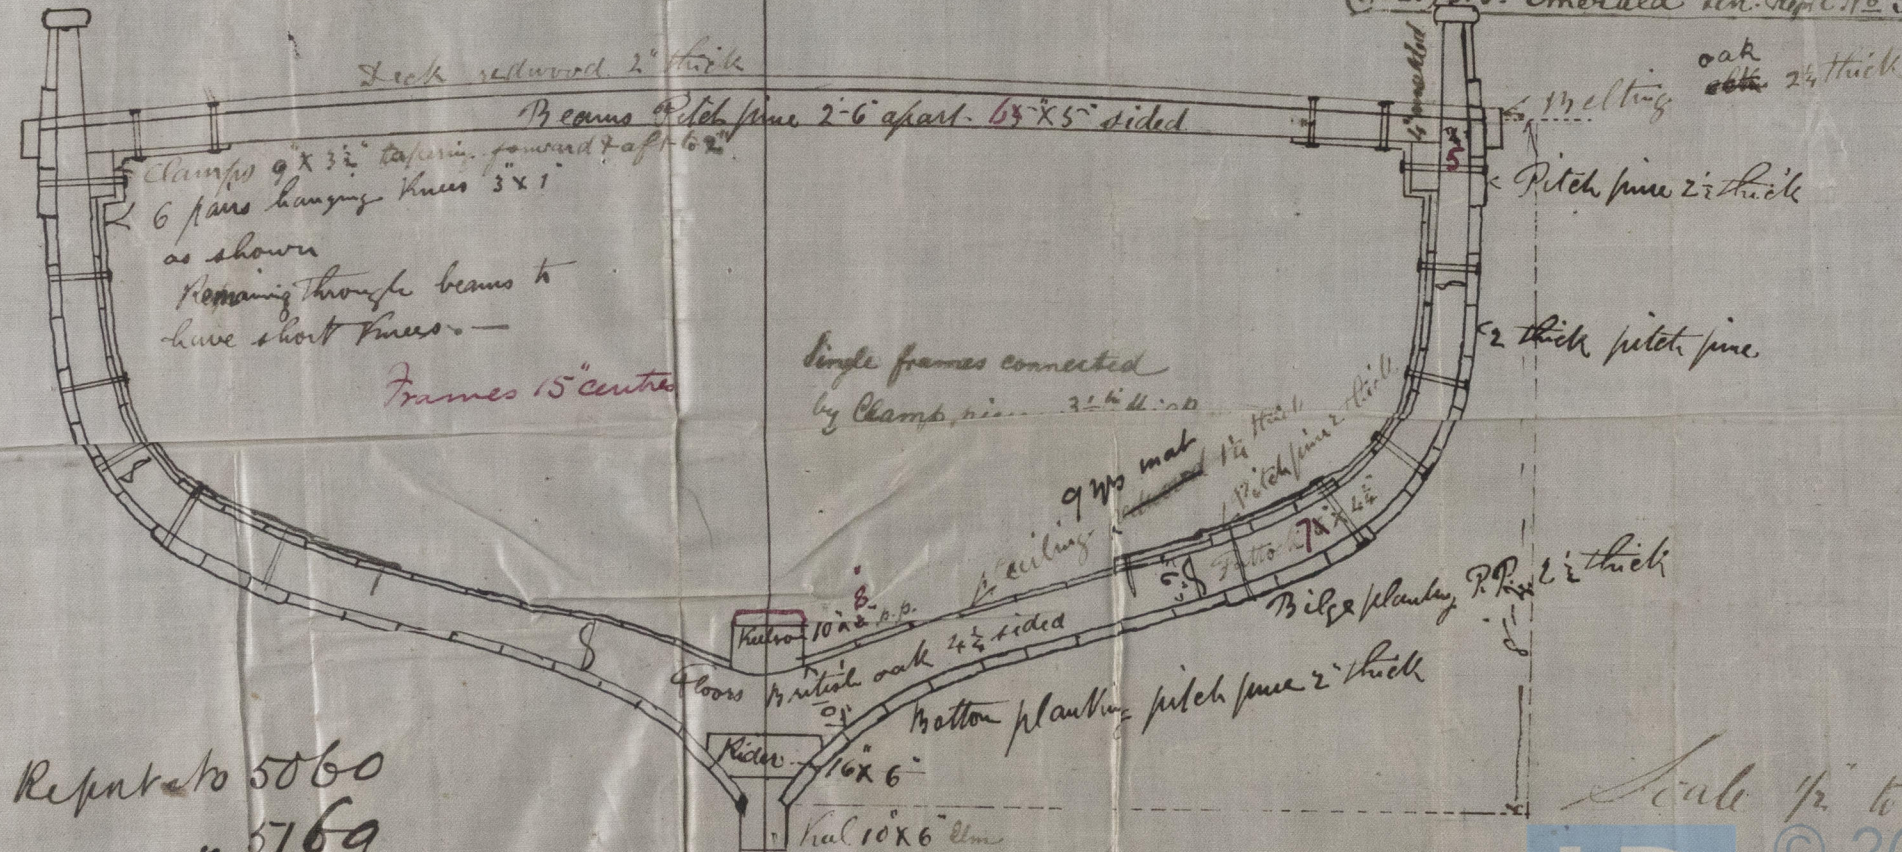 Emerald
oak
Belting 2½ thick
4" moulded
Deck redwood 2" thick
Beams Pitch pine 2'-6" apart. 6½" x 5" sided
Clamps 9" x 3½" tapering forward & aft to 2"
6 pairs hanging knees 3" x 1"
as shown
Remaining through beams to
have short knees. —
x 5
Pitch pine 2½ thick
2" thick pitch pine
Frames 15" centres
Single frames connected
by Clamp
9 wps mat 1¼ thick
ceiling
Pitch pine 2" thick
Futtock 7" x 4½
Bilge planking P. Pine 2½ thick
8
Keelson 10" x p.p.
Floors British oak 4½ sided
Bottom planking pitch pine 2" thick
Rider 16" x 6"
Keel 10" x 6" Elm
Report No 5060
" 5169
Scale 1/2" to
© 20